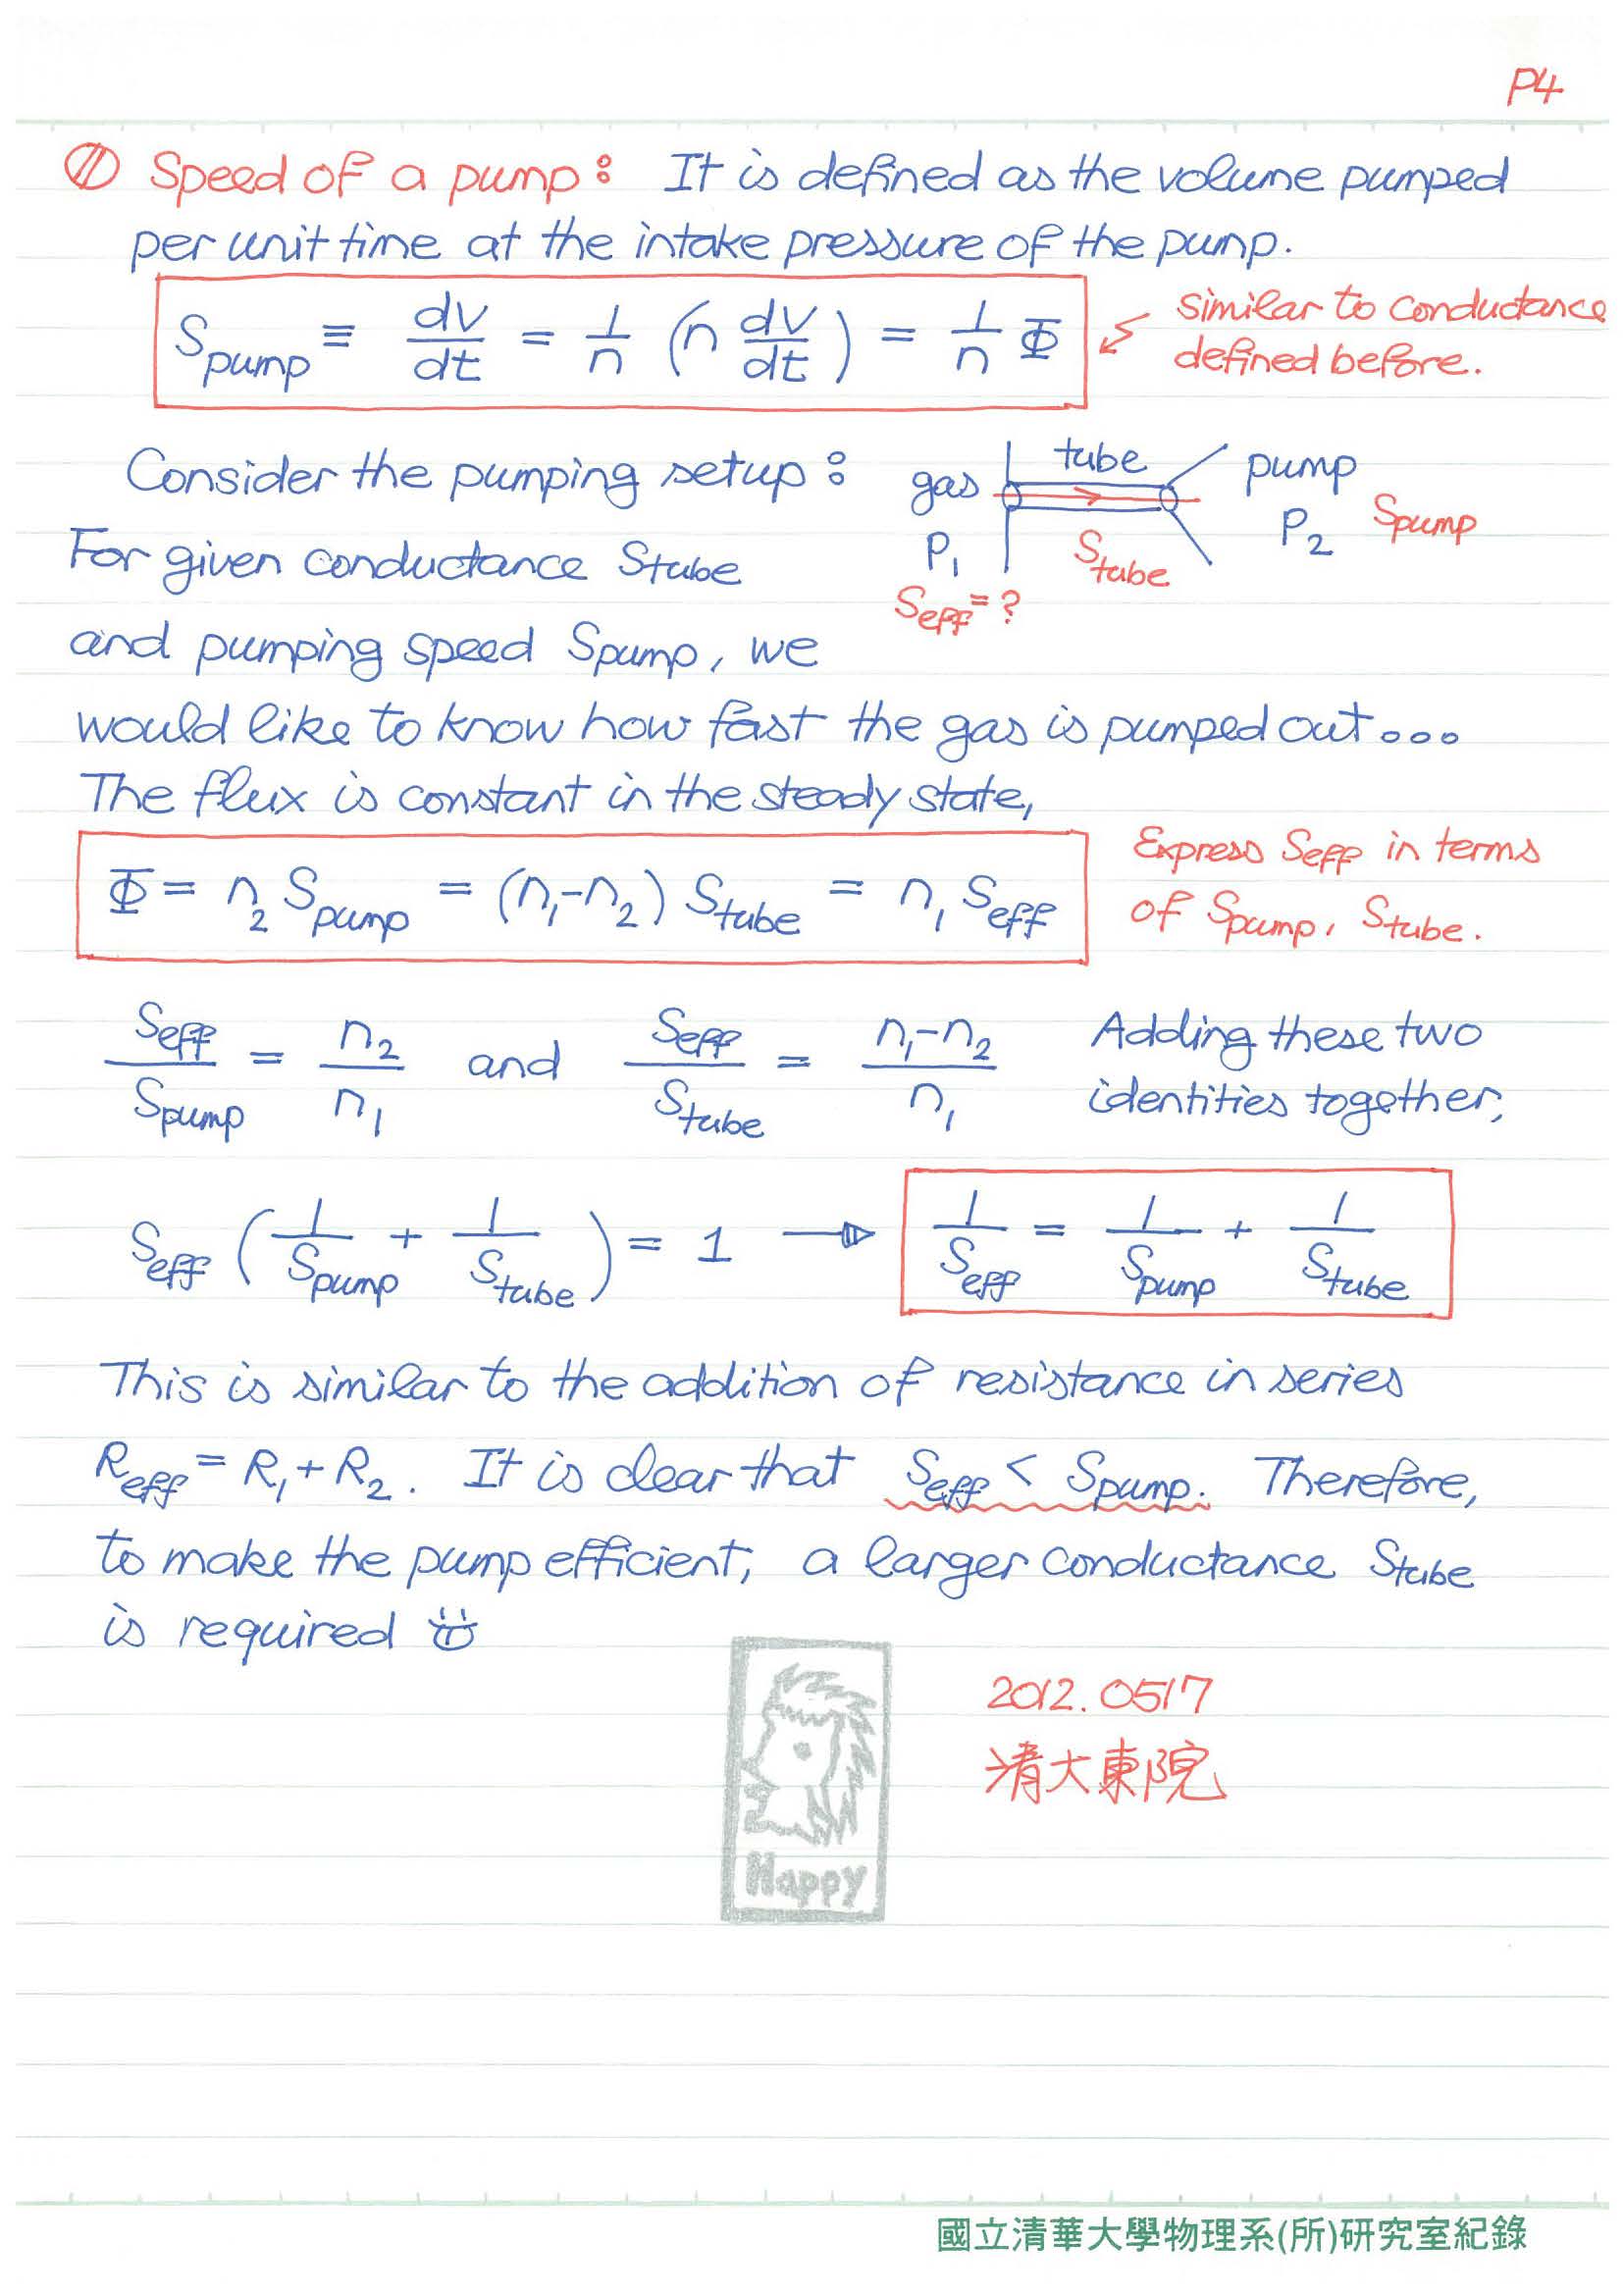 P4
Speed of a pump: It is defined as the volume pumped
per unit time at the intake pressure of the pump.
S_pump ≡ dV/dt = 1/n (n dV/dt) = 1/n Φ
similar to conductance
defined before.
Consider the pumping setup:
gas tube pump
P₁ S_tube P₂ S_pump
S_eff = ?
For given conductance S_tube
and pumping speed S_pump, we
would like to know how fast the gas is pumped out...
The flux is constant in the steady state,
Φ = n₂ S_pump = (n₁-n₂) S_tube = n₁ S_eff
Express S_eff in terms
of S_pump, S_tube.
S_eff/S_pump = n₂/n₁ and S_eff/S_tube = (n₁-n₂)/n₁
Adding these two
identities together,
S_eff (1/S_pump + 1/S_tube) = 1 → 1/S_eff = 1/S_pump + 1/S_tube
This is similar to the addition of resistance in series
R_eff = R₁ + R₂. It is clear that S_eff < S_pump. Therefore,
to make the pump efficient, a larger conductance S_tube
is required
Happy
2012.0517
清大東院
國立清華大學物理系(所)研究室紀錄